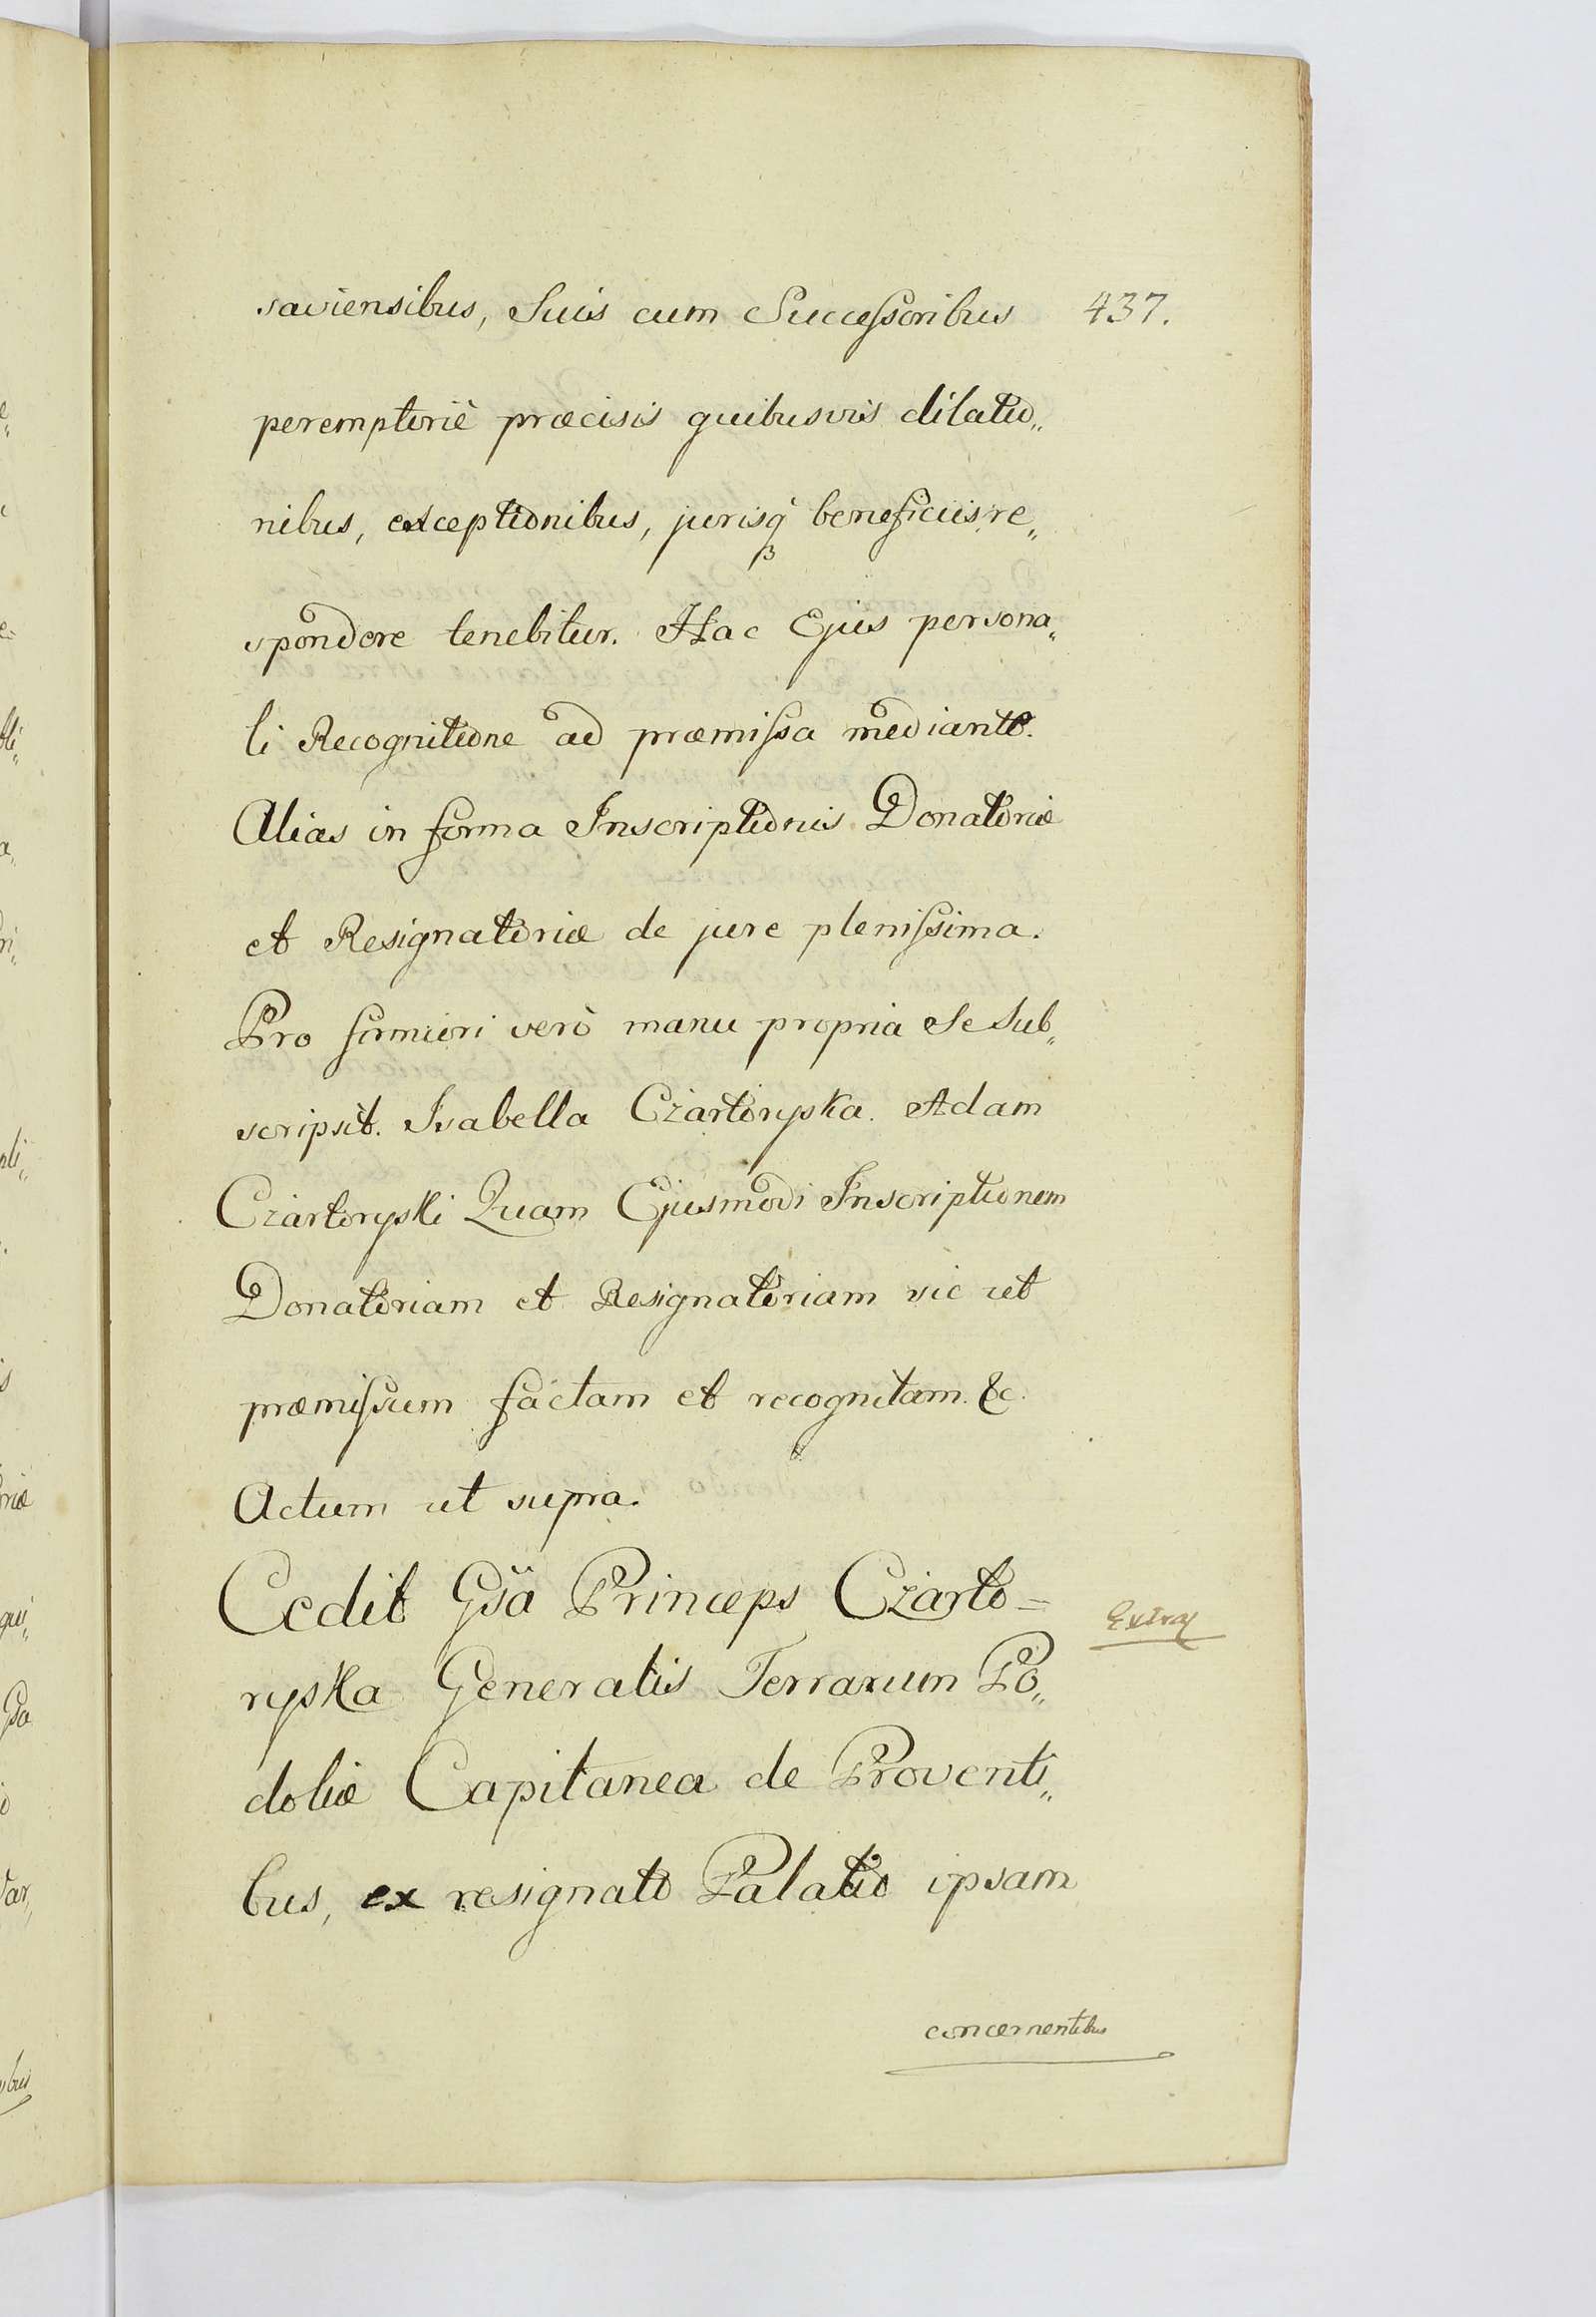 saviensibus, Suis cum Successoribus 437.
peremptoriè præcisis quibusvis dilatio„
nibus, exceptionibus, jurisq́ꝫ beneficiis re„
spondere tenebitur. Hac Ejus persona„
li Recognitione ad præmissa mediante.
Alias in forma Inscriptionis Donatoriæ
et Resignatoriæ de jure plenissima.
Pro firmiori verò manu propria Se Sub„
scripsit. Isabella Czartoryska. Adam
Czartoryski Quam Ejusmodi Inscriptionem
Donatoriam et Resignatoriam sic ut
præmissum factam et recognitam &c.
Actum ut supra.
Cedit Gsa Princeps Czarto=
ryska Generalis Terrarum Po„
doliæ Capitanea de Proventi„
bus, ex resignato Palatio ipsam
concernentibus